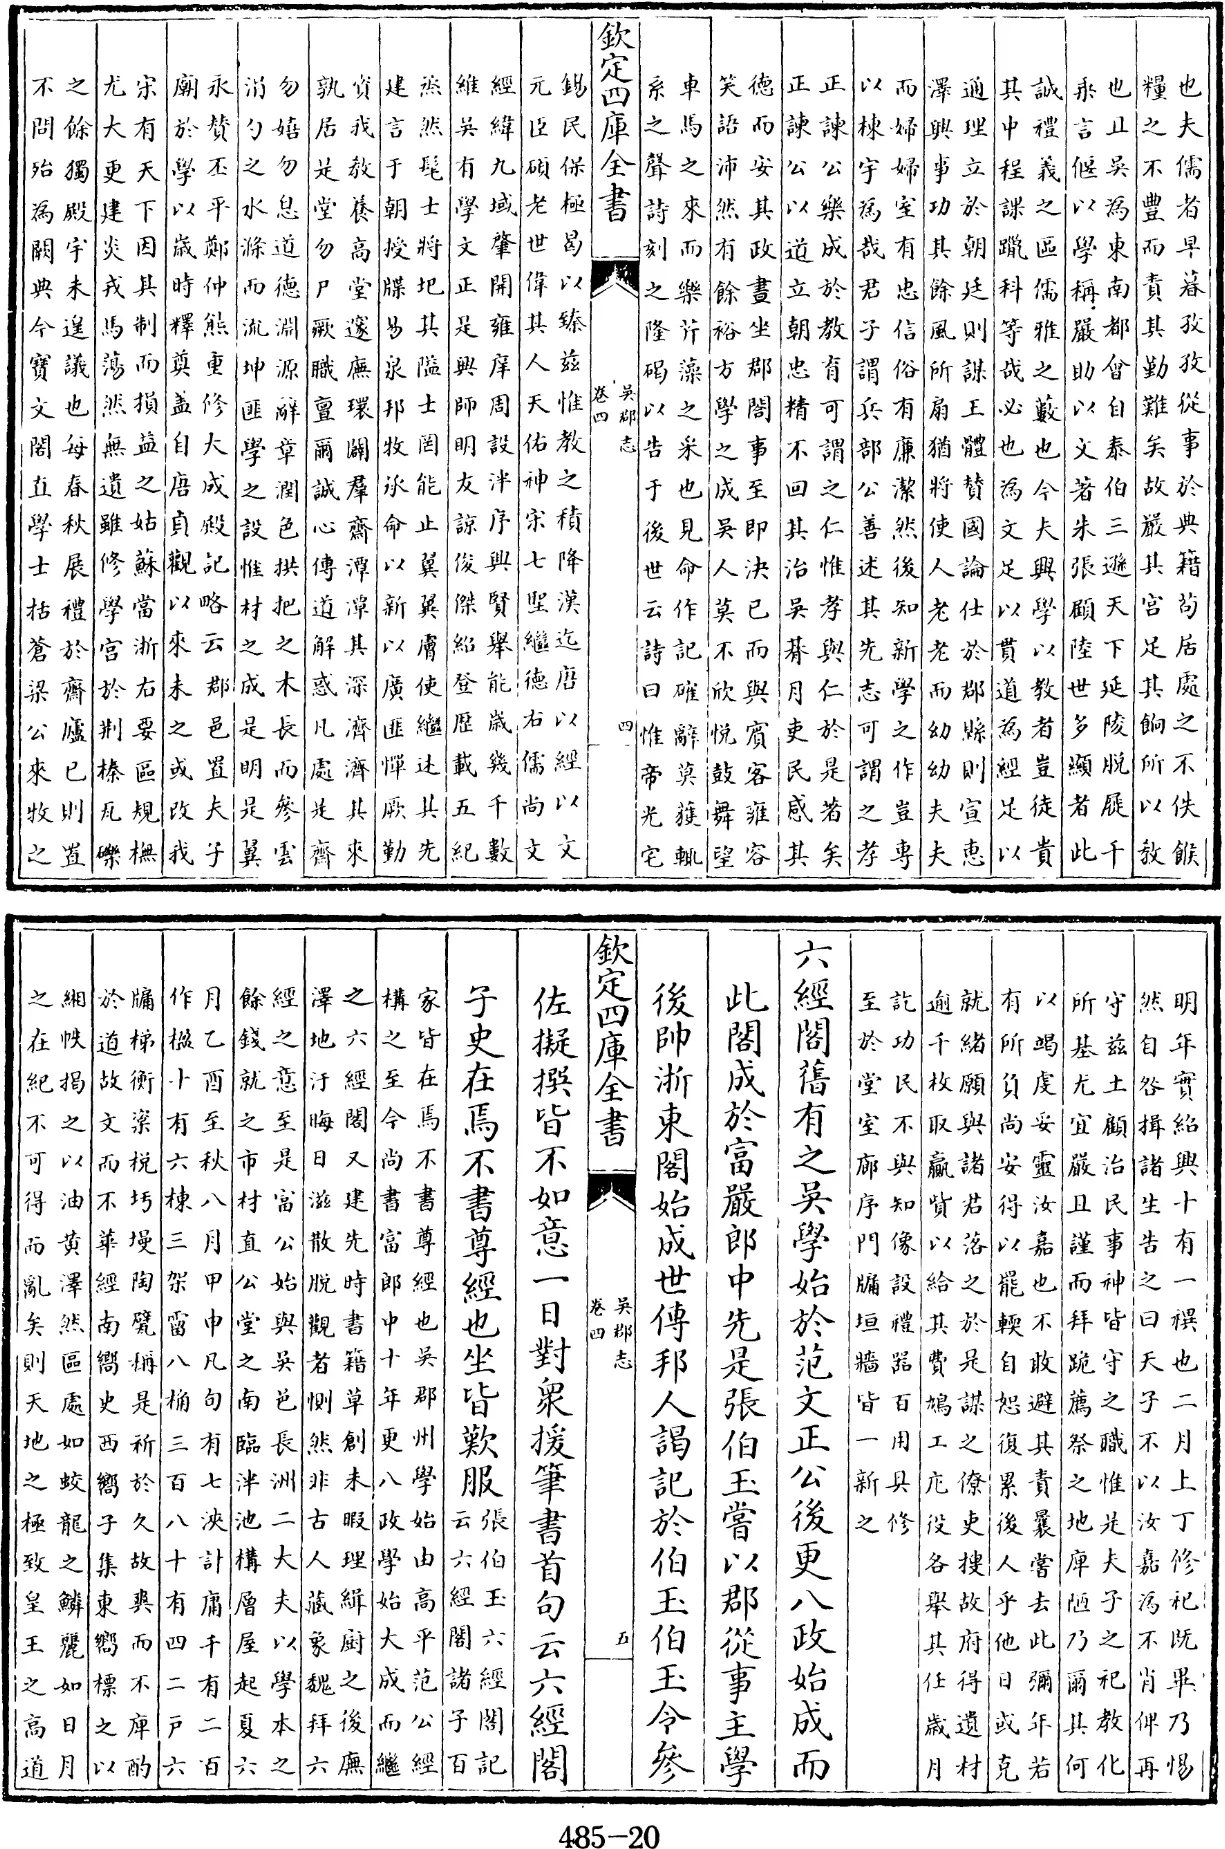 也夫儒者早暮孜孜從事於典籍苟居處之不佚餱
糧之不豐而責其勤難矣故嚴其宮足其餉所以教
也且吳為東南都會自泰伯三遜天下延陵脫屣千
乘言偃以學稱嚴助以文著朱張顧陸世多顯者此
誠禮義之區儒雅之藪也今夫興學以教者豈徒貴
其中程課躐科等哉必也為文足以貫道為經足以
適理立於朝廷則謀王體賛國論仕於郡縣則宣惠
澤興事功其餘風所扇猶將使人老老而幼幼夫夫
而婦婦室有忠信俗有廉潔然後知新學之作豈專
以棟宇為哉君子謂兵部公善述其先志可謂之孝
正諫公樂成於教育可謂之仁惟孝與仁於是著矣
正諫公以道立朝忠精不回其治吳朞月吏民感其
德而安其政晝坐郡閤事至即決已而與賓客雍容
笑語沛然有餘裕方學之成吳人莫不欣悅鼓舞望
車馬之來而樂芹藻之采也見命作記確辭莫獲輒
系之聲詩刻之隆碣以告于後世云詩曰惟帝光宅
欽定四庫全書
吳郡志
卷四
四
錫民保極曷以臻兹惟教之積降漢迄唐以經以文
元臣碩老世偉其人天佑神宋七聖繼德右儒尚文
經緯九域肇開雍庠周設泮序興賢舉能歲幾千數
維吳有學文正是興師明友諒俊傑紹登歷載五紀
烝然髦士將圯其隘士罔能止翼翼膚使繼述其先
建言于朝授牒易泉邦牧承命以新以廣匪憚厥勤
資我教養高堂邃廡環闢羣齋潭潭其深濟濟其來
孰居是堂勿尸厥職亶爾誠心傳道解惑凡處是齋
勿嬉勿息道德淵源辭章潤色拱把之木長而參雲
涓勺之水滌而流坤匪學之設惟材之成是明是翼
永賛丕平鄭仲熊重修大成殿記略云郡邑置夫子
廟於學以歲時釋奠盖自唐貞觀以來未之或改我
宋有天下因其制而損益之姑蘇當浙右要區規橅
尤大更建炎戎馬蕩然無遺雖修學宮於荆榛瓦礫
之餘獨殿宇未遑議也每春秋展禮於齋廬已則置
不問殆為闕典今寶文閣直學士括蒼梁公來牧之
明年實紹興十有一禩也二月上丁修祀既畢乃惕
然自咎揖諸生告之曰天子不以汝嘉為不肖俾再
守兹土顧治民事神皆守之職惟是夫子之祀教化
所基尤宜嚴且謹而拜跪薦祭之地庳陋乃爾其何
以竭虔妥靈汝嘉也不敢避其責曩嘗去此彌年若
有所負尚安得以罷輭自恕復累後人乎他日或克
就緒願與諸君落之於是謀之僚吏搜故府得遺材
逾千枚取贏貲以給其費鳩工庀役各舉其任歲月
訖功民不與知像設禮器百用具修
至於堂室廊序門牖垣牆皆一新之
六經閣舊有之吳學始於范文正公後更八政始成而
此閣成於富嚴郎中先是張伯玉嘗以郡從事主學
後帥浙東閣始成世傳邦人謁記於伯玉伯玉令參
欽定四庫全書
吳郡志
卷四
五
佐擬撰皆不如意一日對衆援筆書首句云六經閣
子史在焉不書尊經也坐皆歎服
張伯玉六經閣記
云六經閣諸子百
家皆在焉不書尊經也吳郡州學始由高平范公經
構之至今尚書富郎中十年更八政學始大成而繼
之六經閣又建先時書籍草創未暇理緝厨之後廡
澤地汙晦日滋散脫觀者惻然非古人藏象魏拜六
經之意至是富公始與吳邑長洲二大夫以學本之
餘錢就之市材直公堂之南臨泮池構層屋起夏六
月乙酉至秋八月甲申凡旬有七浹計庸千有二百
作楹十有六棟三架霤八桷三百八十有四二戸六
牖梯衝楶梲圬墁陶甓稱是祈於久故爽而不庳酌
於道故文而不華經南嚮史西嚮子集東嚮標之以
緗帙揭之以油黄澤然區處如蛟龍之鱗麗如日月
之在紀不可得而亂矣則天地之極致皇王之高道
485-20